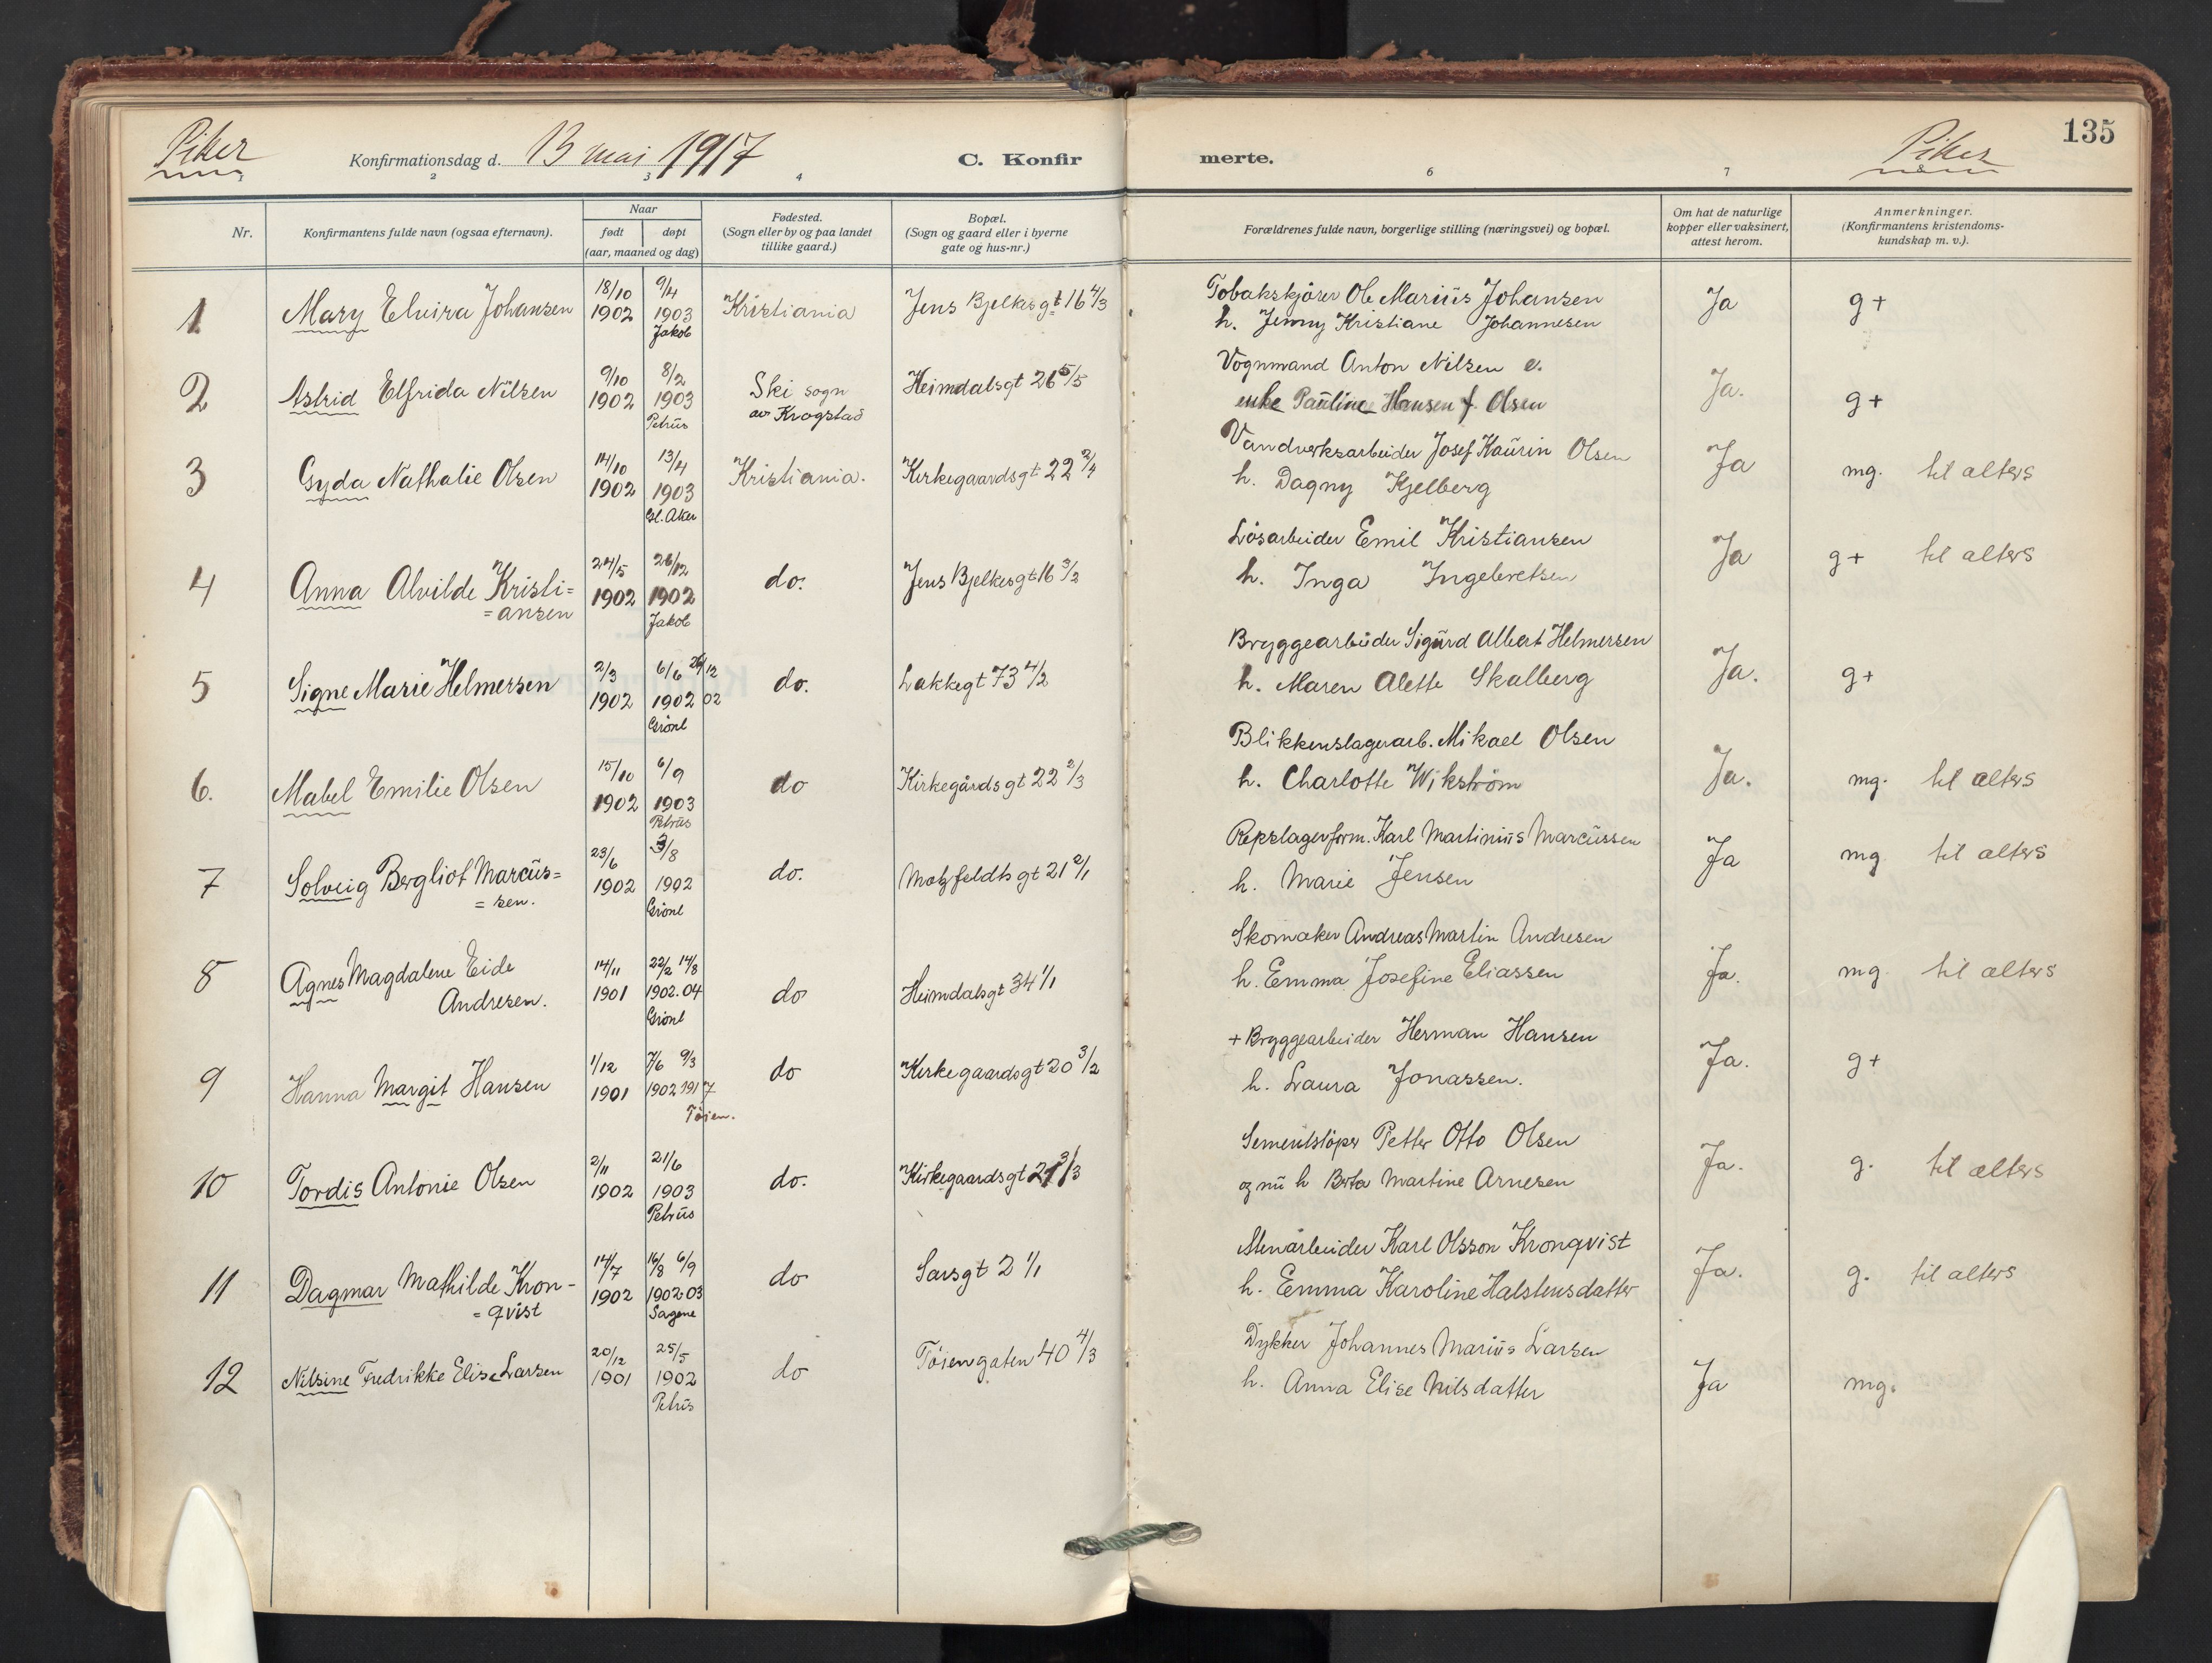 Piker
Konfirmationsdag d. 13 mai 1917
C. Konfirmerte.
Piker
135
1 2 3 4 6 7 8
Nr. Konfirmantens fulde navn (ogsaa efternavn). Naar født døpt (aar, maaned og dag) Fødested. (Sogn eller by og paa landet tillike gaard.) Bopæl. (Sogn og gaard eller i byerne gate og hus-nr.) Forældrenes fulde navn, borgerlige stilling (næringsvei) og bopæl. Om hat de naturlige kopper eller vaksinert, attest herom. Anmerkninger. (Konfirmantens kristendoms-kundskap m. v.).
1 Mary Elvira Johansen 18/10 1902 9/4 1903 Jakob Kristiania Jens Bjelkesgt 16 4/3 Tobakskjører Ole Marius Johansen
h. Jenny Kristiane Johannesen Ja g+
2 Astrid Elfrida Nilsen 9/10 1902 8/2 1903 Petrus Ski sogn av Krogstad Heimdalsgt 26 5/5 Vognmand Anton Nilsen e.
enke Pauline Hansen f. Olsen Ja. g+
3 Gyda Nathalie Olsen 14/10 1902 13/4 1903 Gl. Aker Kristiania. Kirkegaardsgt 22 2/4 Vandverksarbeider Josef Kaurin Olsen
h. Dagny Kjelberg Ja mg. til alters
4 Anna Alvilde Kristi=
=ansen 24/5 1902 26/12 1902 Jakob do. Jens Bjelkesgt 16 3/2 Løsarbeider Emil Kristiansen
h. Inga Ingebretsen Ja g+ til alters
5 Signe Marie Helmersen 2/3 1902 6/6 1902 26/12 02 Grønl do. Lakkegt 73 4/2 Bryggearbeider Sigurd Albert Helmersen
h. Maren Alette Skalberg Ja. g+
6. Mabel Emilie Olsen 15/10 1902 6/9 1903 Petrus do Kirkegårdsgt 22 2/3 Blikkenslagerarb. Mikael Olsen
h. Charlotte Wikstrøm Ja. mg. til alters
7 Solveig Bergliot Marcus=
=sen. 23/6 1902 3/8 1902 Grønl do. Motzfeldtsgt 21 2/1 Repslagerform. Karl Martinius Marcussen
h. Marie Jensen Ja mg til alters
8 Agnes Magdalene Eide
Andresen. 14/11 1901 22/2 14/8 1902.04 Grønl do Heimdalsgt 34 1/1 Skomaker Andreas Martin Andresen
h. Emma Josefine Eliassen Ja. mg. til alters
9 Hanna Margit Hansen 1/12 1901 7/6 9/3 1902 1917 Tøien. do Kirkegaardsgt 20 3/2 + Bryggearbeider Herman Hansen
h. Laura Jonassen. Ja. g+
10 Tordis Antonie Olsen 2/11 1902 21/6 1903 Petrus do. Kirkegaardsgt 21 3/3 Sementstøper Petter Otto Olsen
og nu h Berta Martine Arnesen Ja. g. til alters
11 Dagmar Mathilde Kron-
=qvist 14/7 1902 16/8 6/9 1902 03 Sagene do Sarsgt 2 1/1 Stenarbeider Karl Olsson Kronqvist
h. Emma Karoline Halstensdatter Ja. g. til alters
12 Nilsine Fredrikke Elise Larsen 20/12 1901 25/5 1902 Petrus do Tøiengaten 40 4/3 Dykker Johannes Marius Larsen
h. Anna Elise Nilsdatter Ja mg.